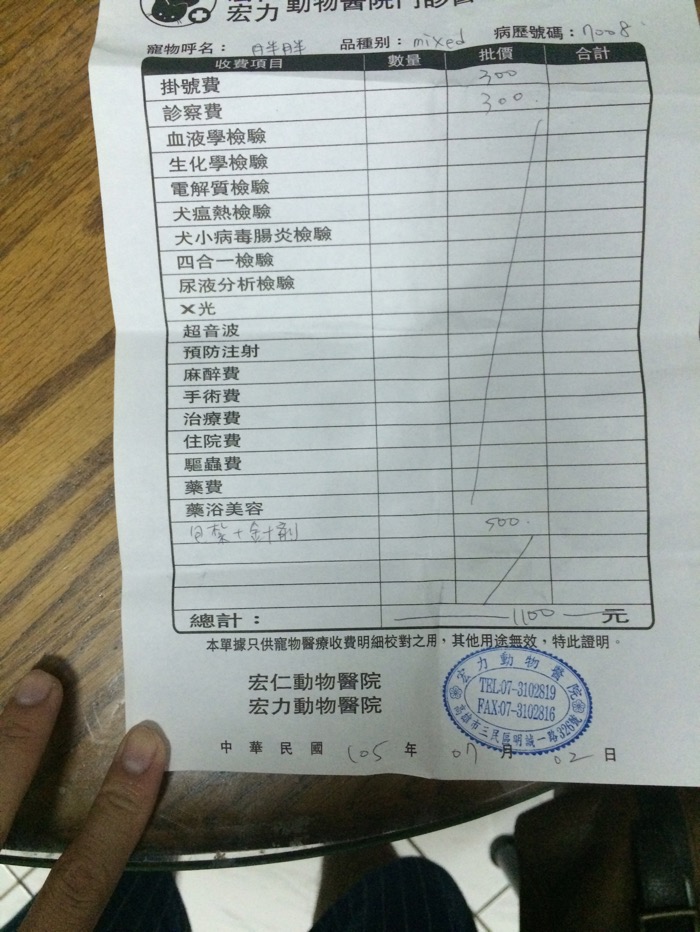 宏力 動物醫院門診
寵物呼名： 胖胖 品種別：mixed 病歷號碼：7008
收費項目 數量 批價 合計
掛號費 300
診察費 300.
血液學檢驗
生化學檢驗
電解質檢驗
犬瘟熱檢驗
犬小病毒腸炎檢驗
四合一檢驗
尿液分析檢驗
X光
超音波
預防注射
麻醉費
手術費
治療費
住院費
驅蟲費
藥費
藥浴美容
針劑 500.
總計： 1100 元
本單據只供寵物醫療收費明細校對之用，其他用途無效，特此證明。
宏仁動物醫院
宏力動物醫院
宏力動物醫院
TEL:07-3102819
FAX:07-3102816
高雄市三民區明誠一路326號
中華民國 105 年 07 月 02 日